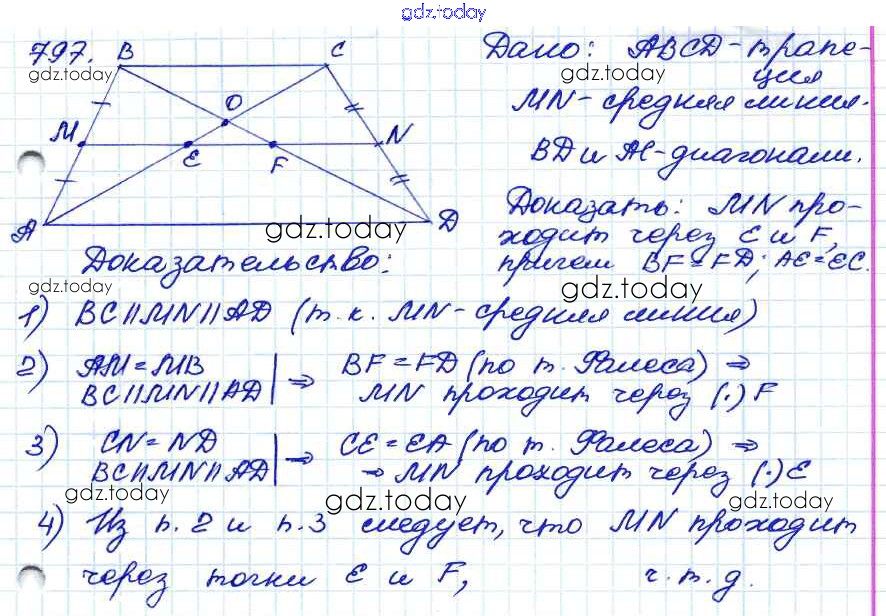 gdz.today
797.
B
C
gdz.today
O
M
E
F
N
A
D
gdz.today
Дано: ABCD - трапе-
gdz.today
ция
MN - средняя линия.
BD и AC - диагонали.
Доказать: MN про-
ходит через E и F,
причем BF = FD; AE = EC.
gdz.today
Доказательство:
gdz.today
1) BC || MN || AD (т. к. MN - средняя линия)
2) AM = MB | ⇒ BF = FD (по т. Фалеса) ⇒
BC || MN || AD | MN проходит через (·) F
3) CN = ND | ⇒ CE = EA (по т. Фалеса) ⇒
BC || MN || AD | ⇒ MN проходит через (·) E
gdz.today
gdz.today
gdz.today
4) Из п. 2 и п. 3 следует, что MN проходит
через точки E и F, ч. т. д.